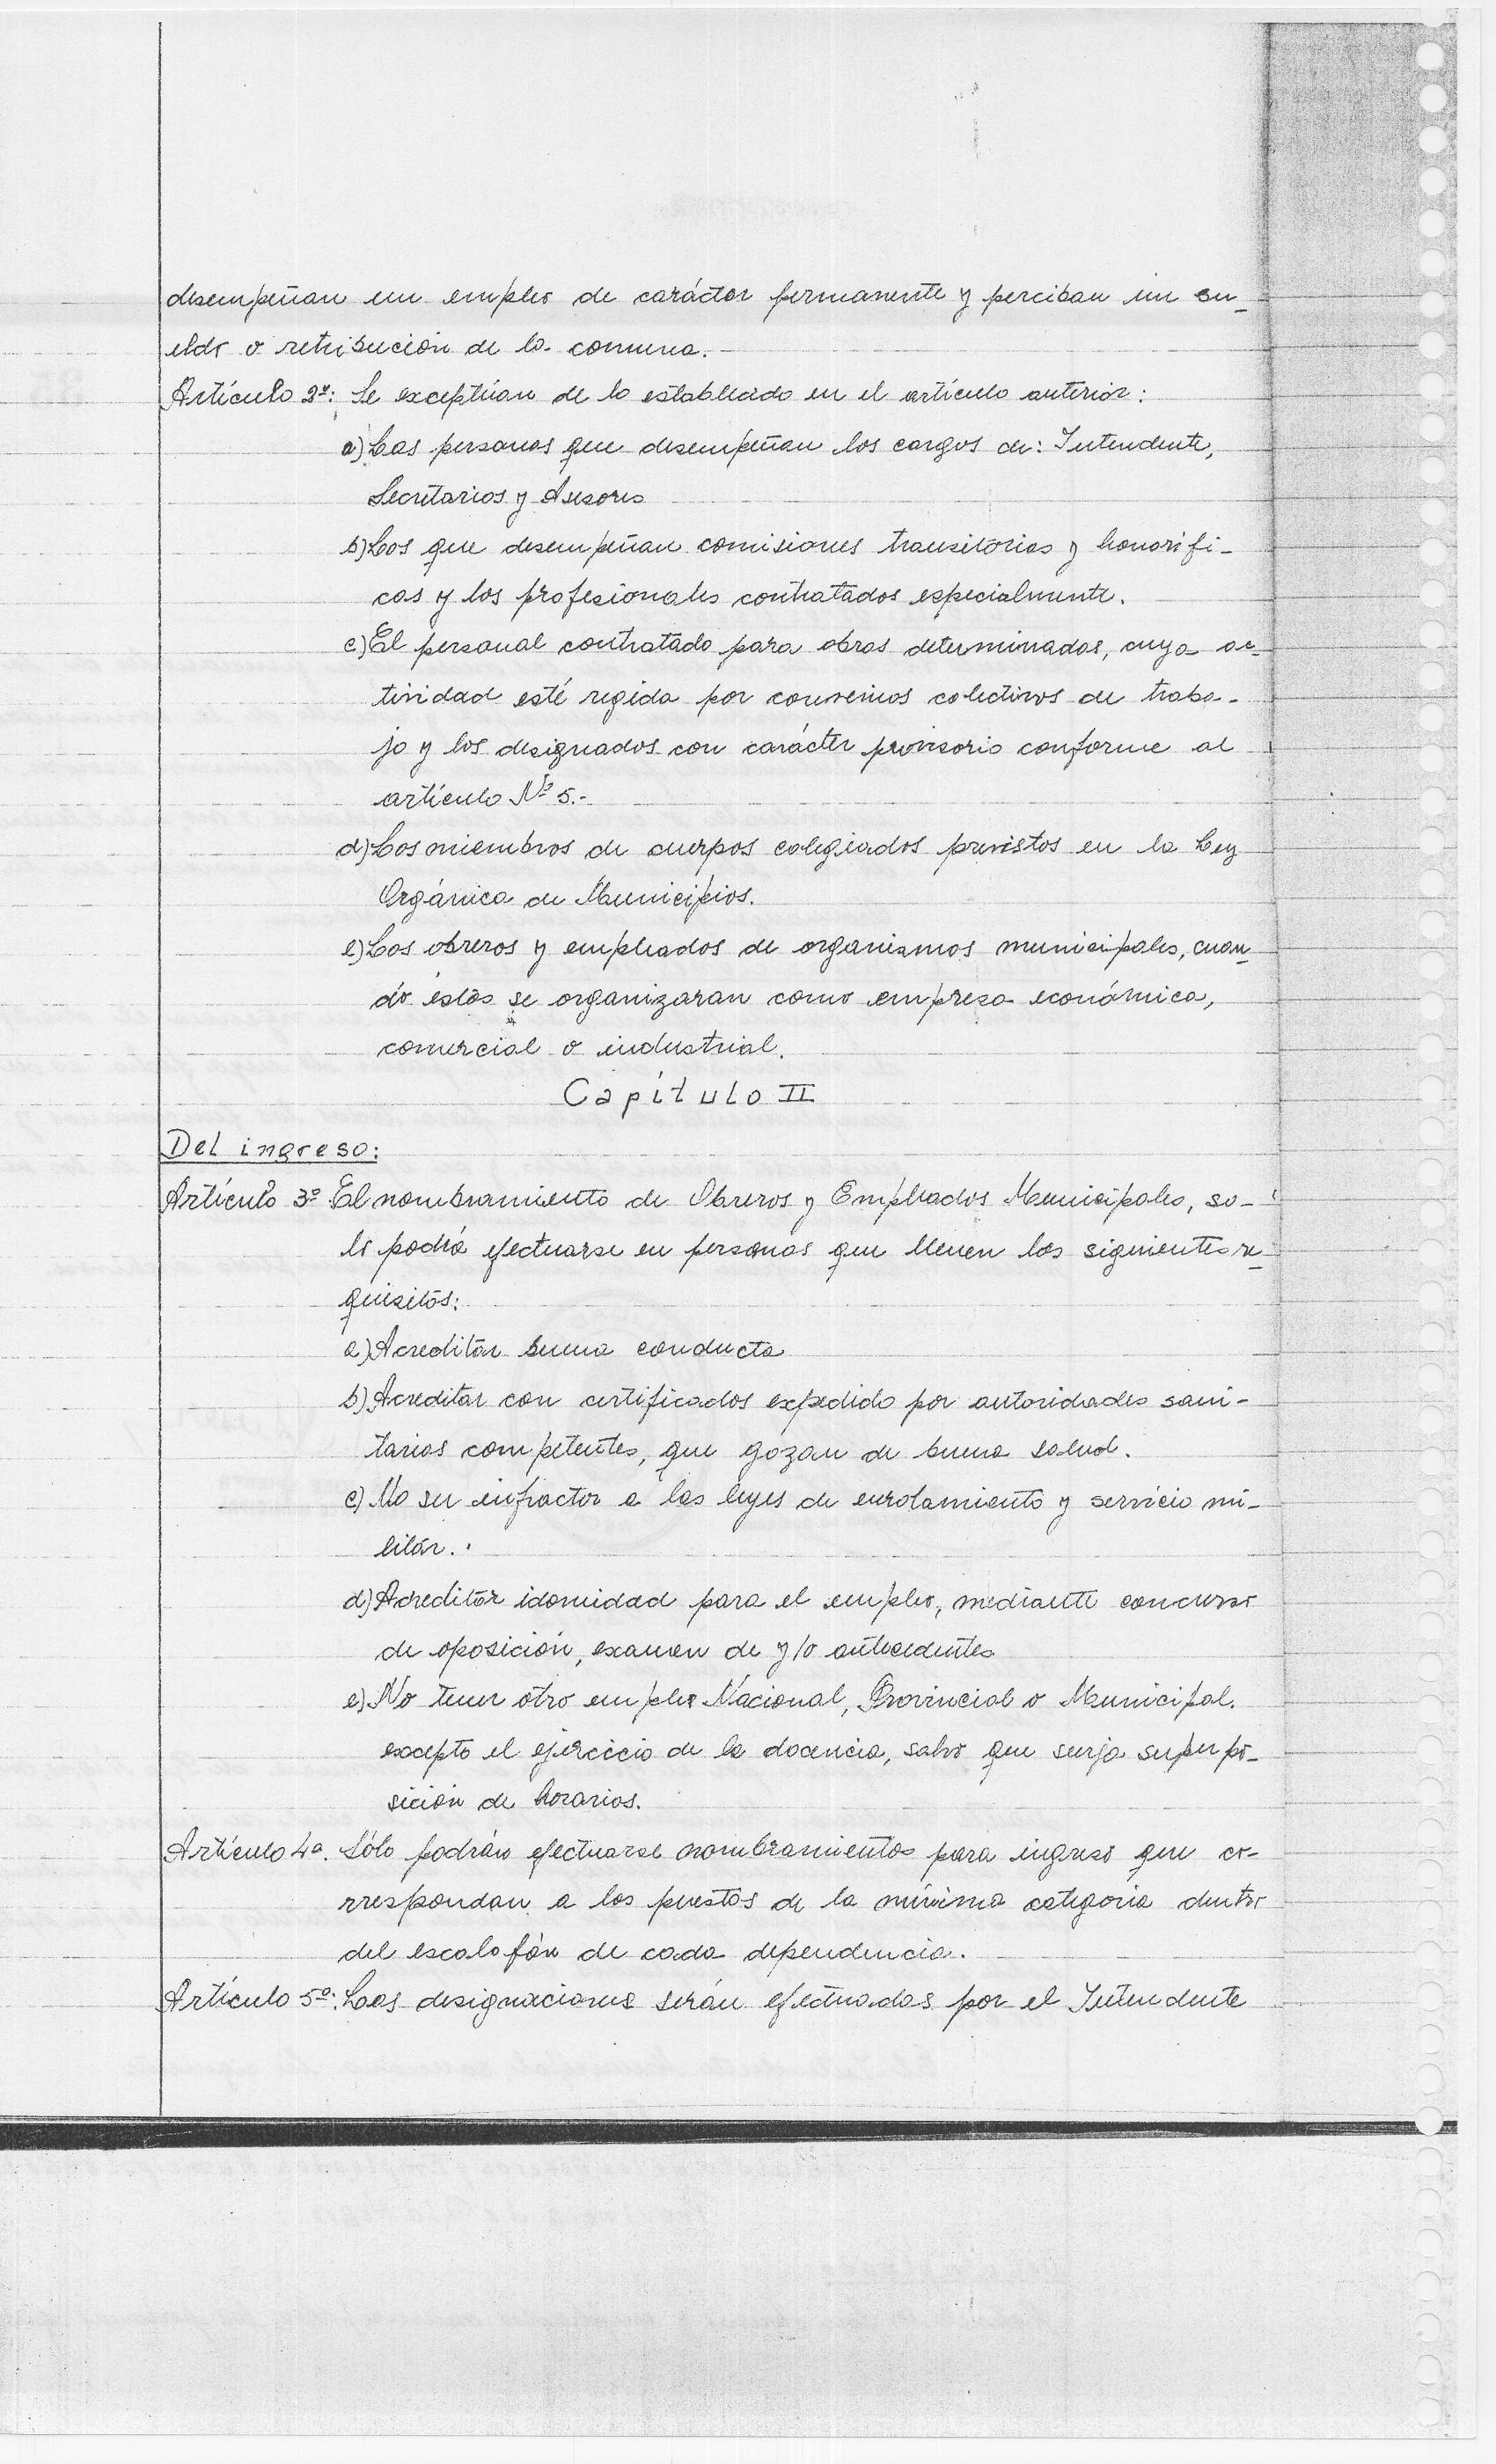 desempeñan un empleo de carácter permanente y perciban un su_
eldo o retribución de la comuna.
Artículo 2º: Se exceptúan de lo establecido en el artículo anterior:
a) Las personas que desempeñan los cargos de: Intendente,
Secretarios y Asesores
b) Los que desempeñan comisiones transitorias y honorifi-
cas y los profesionales contratados especialmente.
c) El personal contratado para obras determinadas, cuya ac-
tividad esté regida por convenios colectivos de traba-
jo y los designados con carácter provisorio conforme al
artículo Nº 5.-
d) Los miembros de cuerpos colegiados previstos en la Ley
Orgánica de Municipios.
e) Los obreros y empleados de organismos municipales, cuan_
do éstos se organizaran como empresa económica,
comercial o industrial.
Capítulo II
Del ingreso:
Artículo 3º El nombramiento de Obreros y Empleados Municipales, so-
lo podrá efectuarse en personas que llenen los siguientes re_
quisitos:
a) Acreditar buena conducta
b) Acreditar con certificados expedido por autoridades sani-
tarias competentes, que gozan de buena salud.
c) No ser infractor a las leyes de enrolamiento y servicio mi-
litar.
d) Acreditar idoneidad para el empleo, mediante concurso
de oposición, examen de y/o antecedentes
e) No tener otro empleo Nacional, Provincial o Municipal.
excepto el ejercicio de la docencia, salvo que surja superpo-
sición de horarios.
Artículo 4º. Sólo podrán efectuarse nombramientos para ingreso que co-
rrespondan a los puestos de la mínima categoría dentro
del escalafón de cada dependencia.
Artículo 5º: Las designaciones serán efectuadas por el Intendente